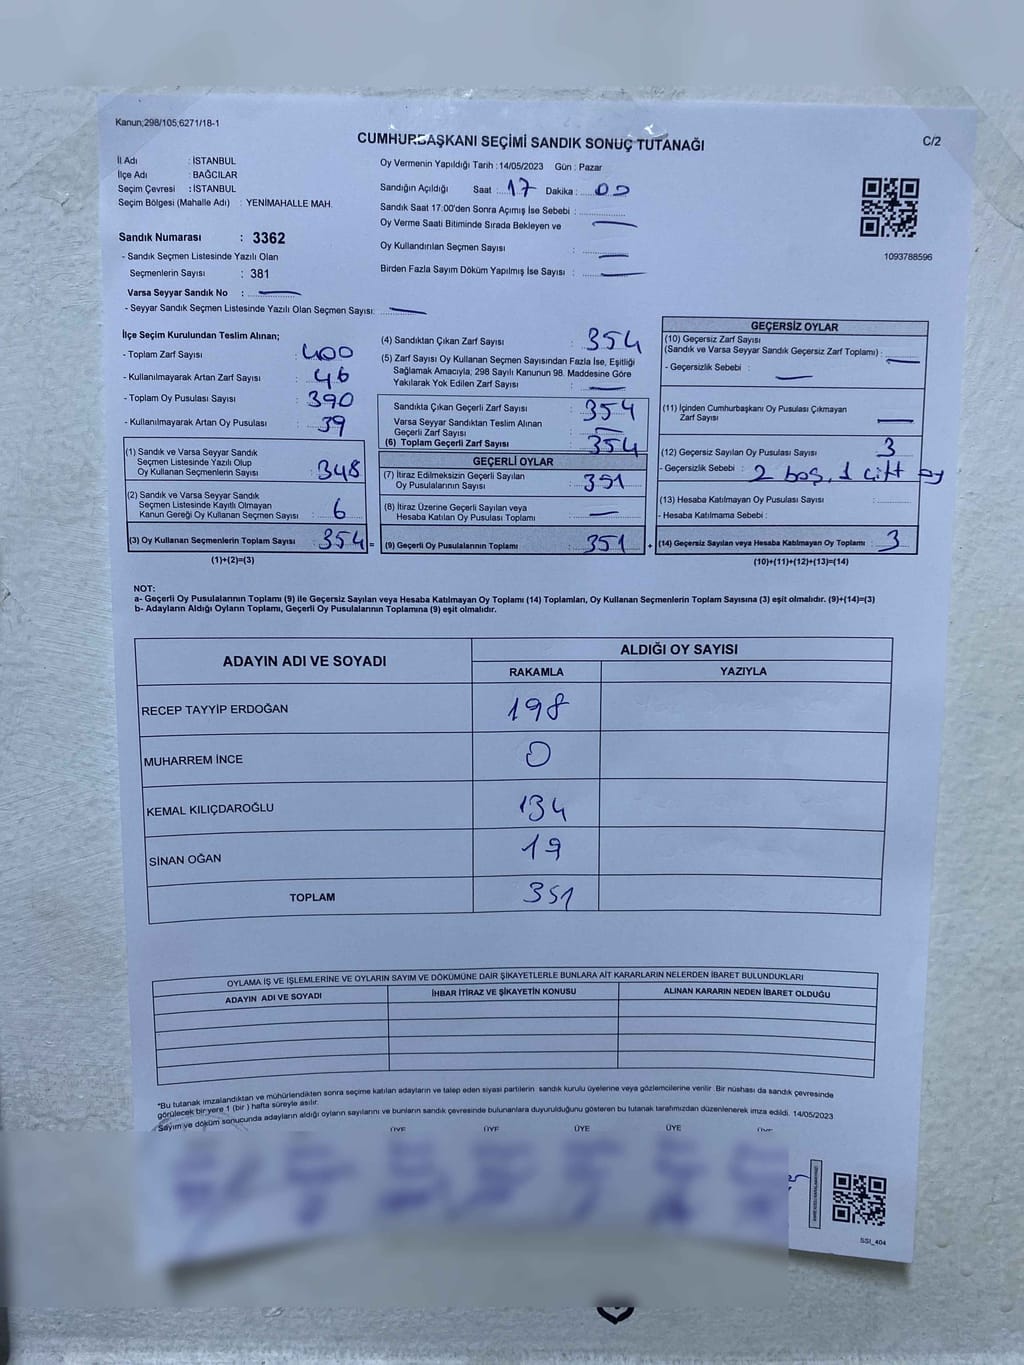 Kanun;298/105,6271/18-1
CUMHURBAŞKANI SEÇİMİ SANDIK SONUÇ TUTANAĞI
C/2
İl Adı : İSTANBUL
İlçe Adı : BAĞCILAR
Seçim Çevresi : İSTANBUL
Seçim Bölgesi (Mahalle Adı) : YENİMAHALLE MAH.
Sandık Numarası : 3362
- Sandık Seçmen Listesinde Yazılı Olan
Seçmenlerin Sayısı : 381
Varsa Seyyar Sandık No :
- Seyyar Sandık Seçmen Listesinde Yazılı Olan Seçmen Sayısı:
Oy Vermenin Yapıldığı Tarih : 14/05/2023 Gün : Pazar
Sandığın Açıldığı Saat : 17 Dakika : 00
Sandık Saat 17:00'den Sonra Açımış İse Sebebi :
Oy Verme Saati Bitiminde Sırada Bekleyen ve
Oy Kullandırılan Seçmen Sayısı :
Birden Fazla Sayım Döküm Yapılmış İse Sayısı :
1093788596
İlçe Seçim Kurulundan Teslim Alınan;
- Toplam Zarf Sayısı : 400
- Kullanılmayarak Artan Zarf Sayısı : 46
- Toplam Oy Pusulası Sayısı : 390
- Kullanılmayarak Artan Oy Pusulası : 39
(1) Sandık ve Varsa Seyyar Sandık
Seçmen Listesinde Yazılı Olup
Oy Kullanan Seçmenlerin Sayısı : 348
(2) Sandık ve Varsa Seyyar Sandık
Seçmen Listesinde Kayıtlı Olmayan
Kanun Gereği Oy Kullanan Seçmen Sayısı : 6
(3) Oy Kullanan Seçmenlerin Toplam Sayısı : 354 =
(1)+(2)=(3)
(4) Sandıktan Çıkan Zarf Sayısı : 354
(5) Zarf Sayısı Oy Kullanan Seçmen Sayısından Fazla İse, Eşitliği
Sağlamak Amacıyla; 298 Sayılı Kanunun 98. Maddesine Göre
Yakılarak Yok Edilen Zarf Sayısı :
Sandıkta Çıkan Geçerli Zarf Sayısı : 354
Varsa Seyyar Sandıktan Teslim Alınan
Geçerli Zarf Sayısı :
(6) Toplam Geçerli Zarf Sayısı : 354
GEÇERLİ OYLAR
(7) İtiraz Edilmeksizin Geçerli Sayılan
Oy Pusulalarının Sayısı : 351
(8) İtiraz Üzerine Geçerli Sayılan veya
Hesaba Katılan Oy Pusulası Toplamı :
(9) Geçerli Oy Pusulalarının Toplamı : 351 +
GEÇERSİZ OYLAR
(10) Geçersiz Zarf Sayısı
(Sandık ve Varsa Seyyar Sandık Geçersiz Zarf Toplamı) :
- Geçersizlik Sebebi :
(11) İçinden Cumhurbaşkanı Oy Pusulası Çıkmayan
Zarf Sayısı :
(12) Geçersiz Sayılan Oy Pusulası Sayısı : 3
- Geçersizlik Sebebi : 2 boş, 1 çift oy
(13) Hesaba Katılmayan Oy Pusulası Sayısı :
- Hesaba Katılmama Sebebi :
(14) Geçersiz Sayılan veya Hesaba Katılmayan Oy Toplamı : 3
(10)+(11)+(12)+(13)=(14)
NOT:
a- Geçerli Oy Pusulalarının Toplamı (9) ile Geçersiz Sayılan veya Hesaba Katılmayan Oy Toplamı (14) Toplamları, Oy Kullanan Seçmenlerin Toplam Sayısına (3) eşit olmalıdır. (9)+(14)=(3)
b- Adayların Aldığı Oyların Toplamı, Geçerli Oy Pusulalarının Toplamına (9) eşit olmalıdır.
ADAYIN ADI VE SOYADI
ALDIĞI OY SAYISI
RAKAMLA YAZIYLA
RECEP TAYYİP ERDOĞAN 198
MUHARREM İNCE 0
KEMAL KILIÇDAROĞLU 134
SİNAN OĞAN 19
TOPLAM 351
OYLAMA İŞ VE İŞLEMLERİNE VE OYLARIN SAYIM VE DÖKÜMÜNE DAİR ŞİKAYETLERLE BUNLARA AİT KARARLARIN NELERDEN İBARET BULUNDUKLARI
ADAYIN ADI VE SOYADI İHBAR İTİRAZ VE ŞİKAYETİN KONUSU ALINAN KARARIN NEDEN İBARET OLDUĞU
*Bu tutanak imzalandıktan ve mühürlendikten sonra seçime katılan adayların ve talep eden siyasi partilerin sandık kurulu üyelerine veya gözlemcilerine verilir. Bir nüshası da sandık çevresinde
görülecek bir yere 1 (bir ) hafta süreyle asılır.
Sayım ve döküm sonucunda adayların aldığı oyların sayılarını ve bunların sandık çevresinde bulunanlara duyurulduğunu gösteren bu tutanak tarafımızdan düzenlenerek imza edildi. 14/05/2023
ÜYE ÜYE ÜYE ÜYE ÜYE
SSI_404